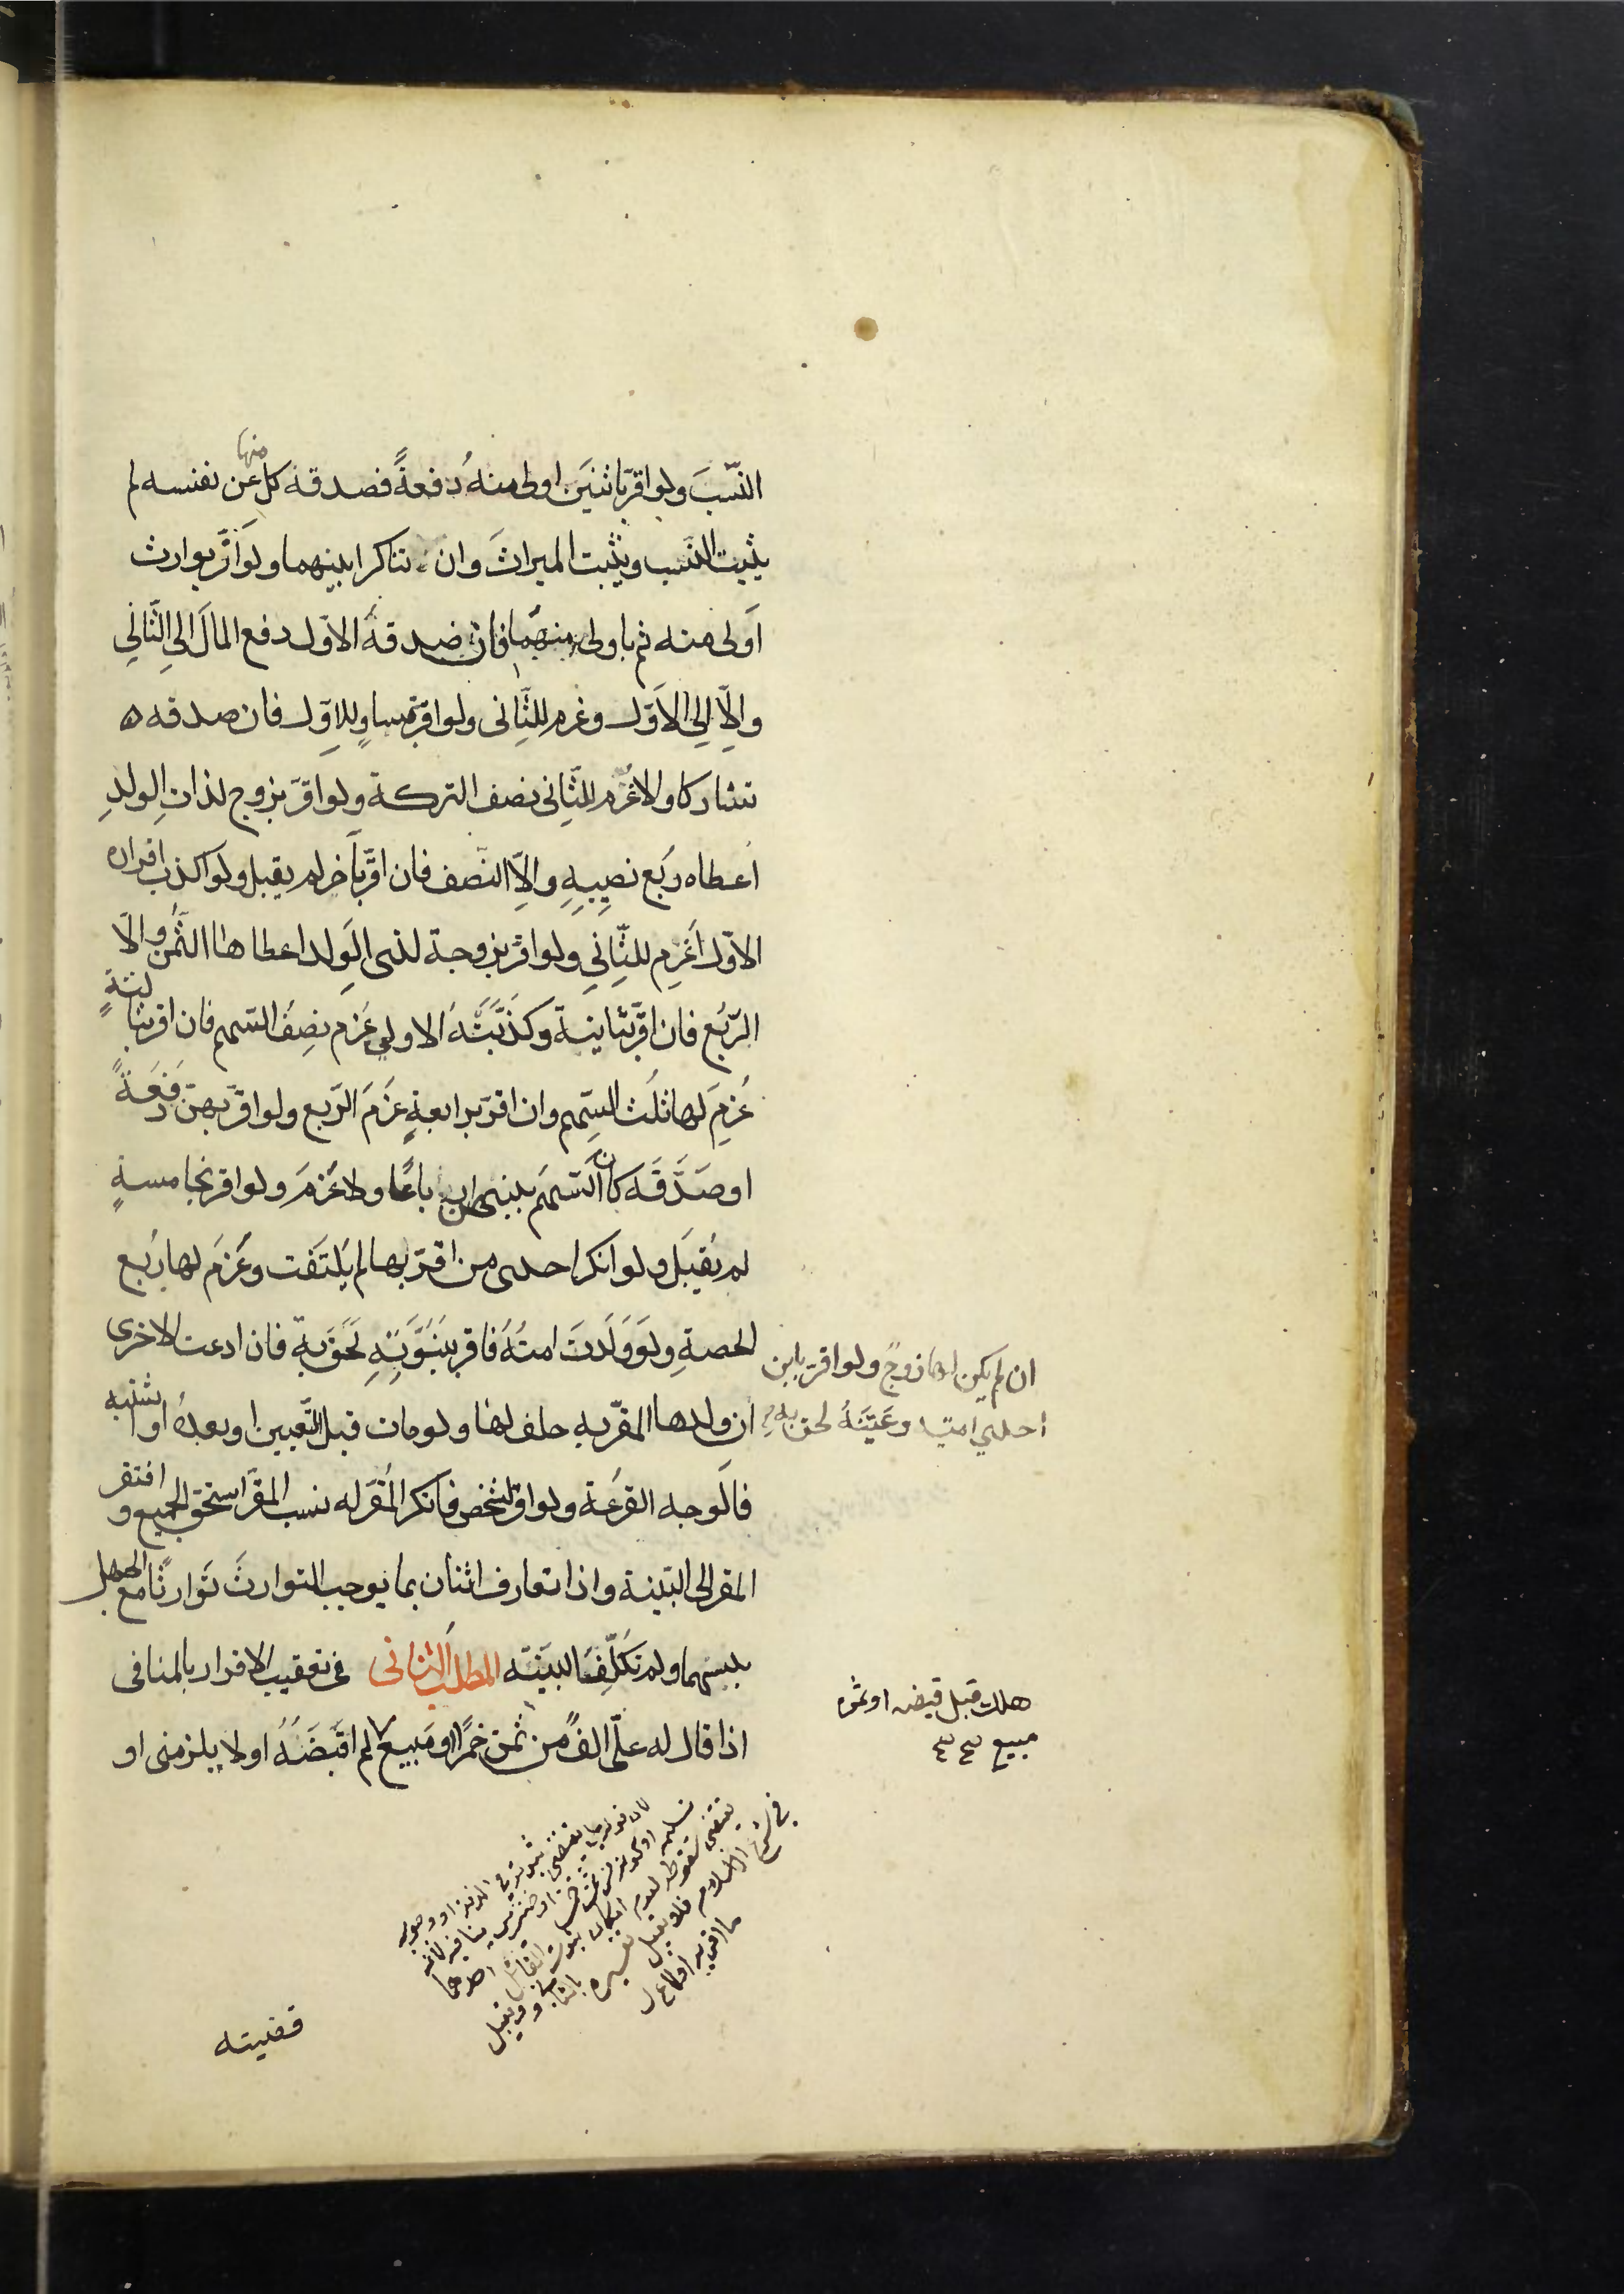 النّسبَ ولو اقرّ باثنَين اولى منهُ دفعةً فصدقه كل منها عن نفسه لم
يثبت النسب ويثبت الميراثَ وان تناكرا بينهما ولو اقرّ بوارث
اَولى منه ثم باولى منهما فان صدقهُ الاوّل دفع المالَ الى الثّاني
والّا الى الاَوّل وغرم للثّانى ولو اقرّ بمساوٍ للاوّل فان صدقه
تشاركا والا غُرّم للثّانى نصف التركة ولو اقرّ بزوج لذات الولدِ
اعطاه ربُع نصيبِهِ والّا النّصف فان اقرّ باخر لم يقبل ولو اكذب اقراره
الاوّل اَغرم للثّانِي ولو اقرّ بزوجة لذى الوَلد اعطاها الثُّمن والّا
الرّبُع فان اقرّ بثانية وكَذّبَتهُ الاولى غرم نصِفُ السّهم فان اقر بثالثةٍ
غُرِمَ لها ثلُث السّهم وان اقرّ برابعةٍ غَرَمَ الرّبع ولو اقرّ بهنّ دَفعَةً
او صَدَّقَه كان السّهَم بينهن ارباعًا ولا غُرَم ولو اقر بخامسةٍ
لم يُقبَل ولو انكر احدى من اقرّ بها لم يَلتَفت وغَرَم لها رُبع
الحصةِ ولوَ وَلَدتَ امتُهُ فاقر ببُنُوَّتِهِ لَحَقَ بهِ فان ادعت الاخرى
ان لم يكن لها زوجٌ ولو اقرّ بابن
احدى امتيه وعَيّنَهُ لحق به
ان ولدها المقرّ به حلف لها ولو مات قبل التّعيين او بعدُه او اشتبه
فالوجه القرعُة ولو اقرّ لشخص فاَنكر المُقرّ له نسب المقرّ استحق الجميع وافتقر
المقر الى البّينة واذا تعارف اثنان بما يوجب التوارثَ تَوارثًا مع الجهل
بنسبهما ولم تكلّفَا البيّنَة المطلبَ الثانى فى تعقيب الاقرار بالمنافى
هلك قبل قبضه او ثمن
مبيع
اذا قال له علىّ الفٌ من ثمن خمرًا او مَبيع لم اقَبَضَهُ او لا يلزمنى او
قضيته